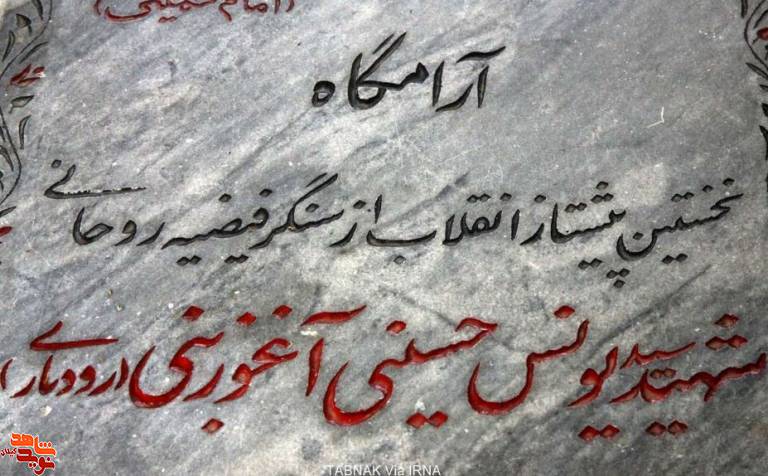 (امام خمینی)
آرامگاه
نخستین پیشتاز انقلاب از سنگر فیضیه روحانی
شهید سید یونس حسینی آغوزبنی (رودباری)
نوید شاهد
گیلان
TABNAK Via IRNA